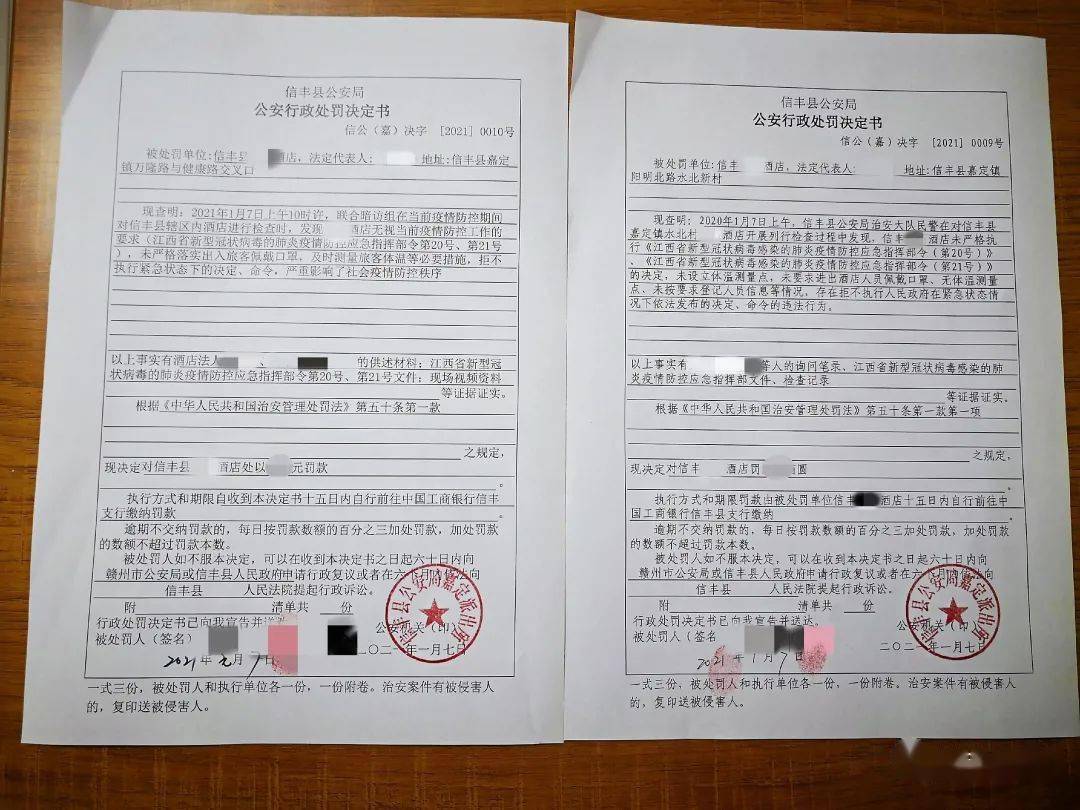 信丰县公安局
公安行政处罚决定书
信公（嘉）决字 [2021] 0010号
被处罚单位：信丰县 酒店，法定代表人： 地址：信丰县嘉定
镇万隆路与健康路交叉口
现查明：2021年1月7日上午10时许，联合暗访组在当前疫情防控期间
对信丰县辖区内酒店进行检查时，发现 酒店无视当前疫情防控工作的
要求（江西省新型冠状病毒的肺炎疫情防控应急指挥部令第20号、第21号
），未严格落实出入旅客佩戴口罩，及时测量旅客体温等必要措施，拒不
执行紧急状态下的决定、命令，严重影响了社会疫情防控秩序
以上事实有酒店法人 、 的供述材料；江西省新型冠
状病毒的肺炎疫情防控应急指挥部令第20号、第21号文件；现场视频资料
等证据证实。
根据《中华人民共和国治安管理处罚法》第五十条第一款
之规定，
现决定对信丰县 酒店处以 元罚款
。
执行方式和期限自收到本决定书十五日内自行前往中国工商银行信丰
支行缴纳罚款
逾期不交纳罚款的，每日按罚款数额的百分之三加处罚款，加处罚款
的数额不超过罚款本数。
被处罚人如不服本决定，可以在收到本决定书之日起六十日内向
赣州市公安局或信丰县人民政府申请行政复议或者在六 月内依法向
信丰县 人民法院提起行政诉讼。
附 清单共 份
行政处罚决定书已向我宣告并送达
被处罚人（签名） 公安机关（印）
2021年元月7日 二〇二一年一月七日
一式三份，被处罚人和执行单位各一份，一份附卷。治安案件有被侵害人
的，复印送被侵害人。
信丰县公安局嘉定派出所
信丰县公安局
公安行政处罚决定书
信公（嘉）决字 [2021] 0009号
被处罚单位：信丰 酒店，法定代表人： 地址：信丰县嘉定镇
阳明北路水北新村
现查明：2020年1月7日上午，信丰县公安局治安大队民警在对信丰县
嘉定镇水北村 酒店开展列行检查过程中发现，信丰 酒店未严格执
行《江西省新型冠状病毒感染的肺炎疫情防控应急指挥部令（第20号）》
、《江西省新型冠状病毒感染的肺炎疫情防控应急指挥部令（第21号）》
的决定，未设立体温测量点，未要求进出酒店人员佩戴口罩、无体温测量
点、未按要求登记人员信息等情况，存在拒不执行人民政府在紧急状态情
况下依法发布的决定、命令的违法行为。
以上事实有 等人的询问笔录、江西省新型冠状病毒感染的肺
炎疫情防控应急指挥部文件、检查记录
等证据证实。
根据《中华人民共和国治安管理处罚法》第五十条第一款第一项
之规定，
现决定对信丰 酒店罚 圆
。
执行方式和期限罚款由被处罚单位信丰 酒店十五日内自行前往中
国工商银行信丰县支行缴纳
逾期不交纳罚款的，每日按罚款数额的百分之三加处罚款，加处罚款
的数额不超过罚款本数。
被处罚人如不服本决定，可以在收到本决定书之日起六十日内向
赣州市公安局或信丰县人民政府申请行政复议或者在六 月内依法向
信丰县 人民法院提起行政诉讼。
附 清单共 份
行政处罚决定书已向我宣告并送达。
被处罚人（签名 公安机关（印）
2021年1月7日 二〇二一年一月七日
一式三份，被处罚人和执行单位各一份，一份附卷。治安案件有被侵害人
的，复印送被侵害人。
信丰县公安局嘉定派出所